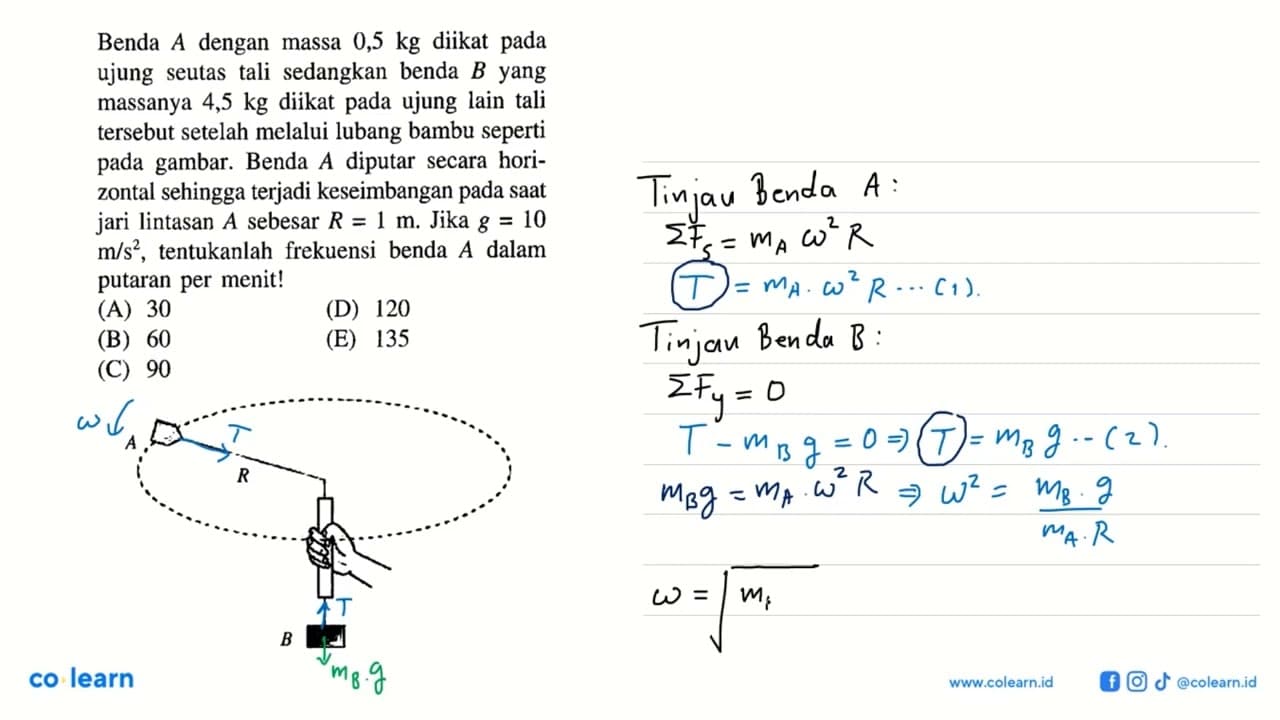 Benda A dengan massa 0,5 kg diikat pada
ujung seutas tali sedangkan benda B yang
massanya 4,5 kg diikat pada ujung lain tali
tersebut setelah melalui lubang bambu seperti
pada gambar. Benda A diputar secara hori-
zontal sehingga terjadi keseimbangan pada saat
jari lintasan A sebesar R = 1 m. Jika g = 10
m/s², tentukanlah frekuensi benda A dalam
putaran per menit!
(A) 30 (D) 120
(B) 60 (E) 135
(C) 90
ω
A
T
R
T
B
m_B.g
Tinjau Benda A:
ΣF_s = m_A ω² R
T = m_A. ω² R ... (1).
Tinjau Benda B:
ΣF_y = 0
T - m_B g = 0 ⇒ T = m_B g .. (2).
m_B g = m_A . ω² R ⇒ ω² = m_B . g / m_A . R
ω = √m
co learn
www.colearn.id
@colearn.id